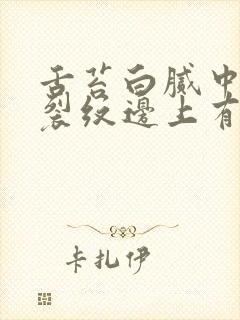 舌苔白腻中
裂纹邊上有
卡扎伊